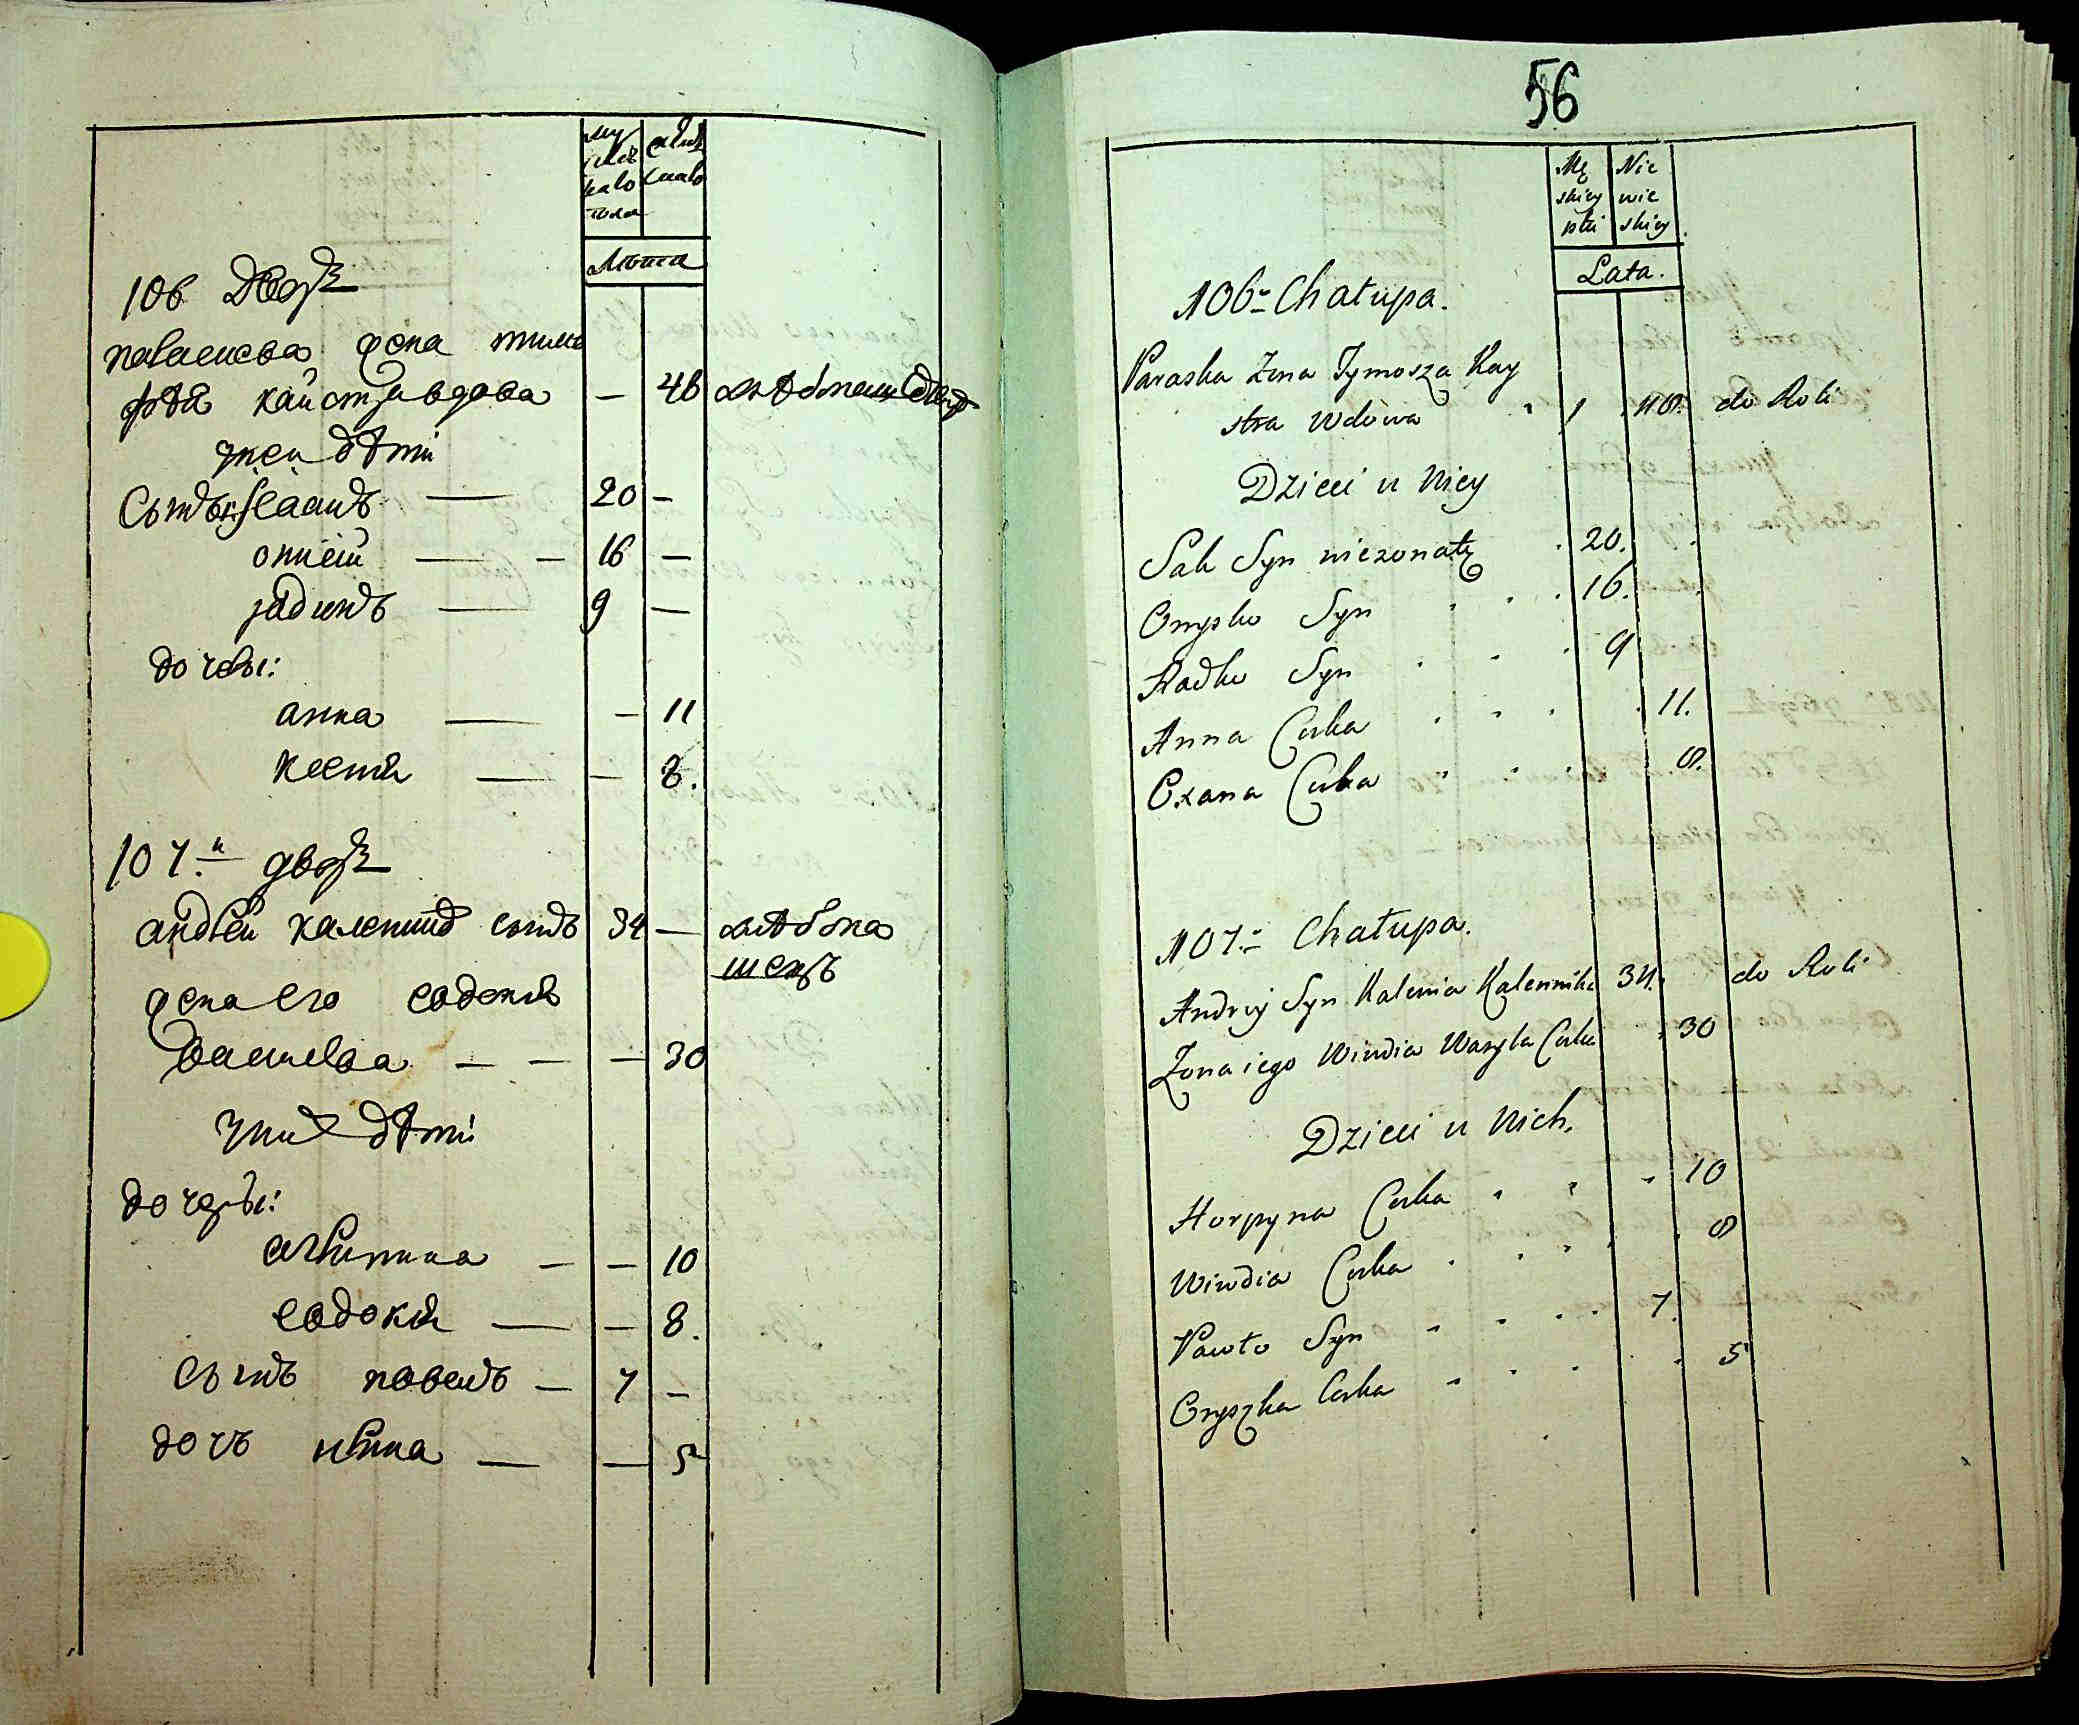 му
жеска
го
пола
женс
каго
Лѣта
106 Дворъ
пелагиева жена тимо
фѣя кайстра вдова — 48 хлѣбопашецъ
у неи дѣти
Сынъ — 20 —
онисій — — 16 —
радионъ — 9 —
дочеры:
анна — — 11
ксенія — — 8.
107.й дворъ
андрей каленикъ сынъ 34 — хлѣбопа
шецъ
жена его евдокія
василева — — — 30
у них дѣти
дочеры:
агрипина — — 10
евдокія — — 8.
сынъ павелъ — 7 —
дочь ирина — — 5
56
Mę
skiey
płci
Nie
wie
skiey
Lata.
106. Chałupa.
Paraska Żona Tymosza Kay
stra Wdowa 48. do Roli
Dzieci u Niey
Sak Syn nieżonaty 20.
Onysko Syn 16.
Radko Syn 9
Anna Curka 11.
Oxana Curka 8.
107. Chałupa.
Andriy Syn Kalenia Kalennika 34. do Roli
Żona iego Wiwdia Wasyla Curka 30
Dzieci u Nich.
Horpyna Curka 10
Wiwdia Curka 8
Pawło Syn 7.
Oryszka Curka 5